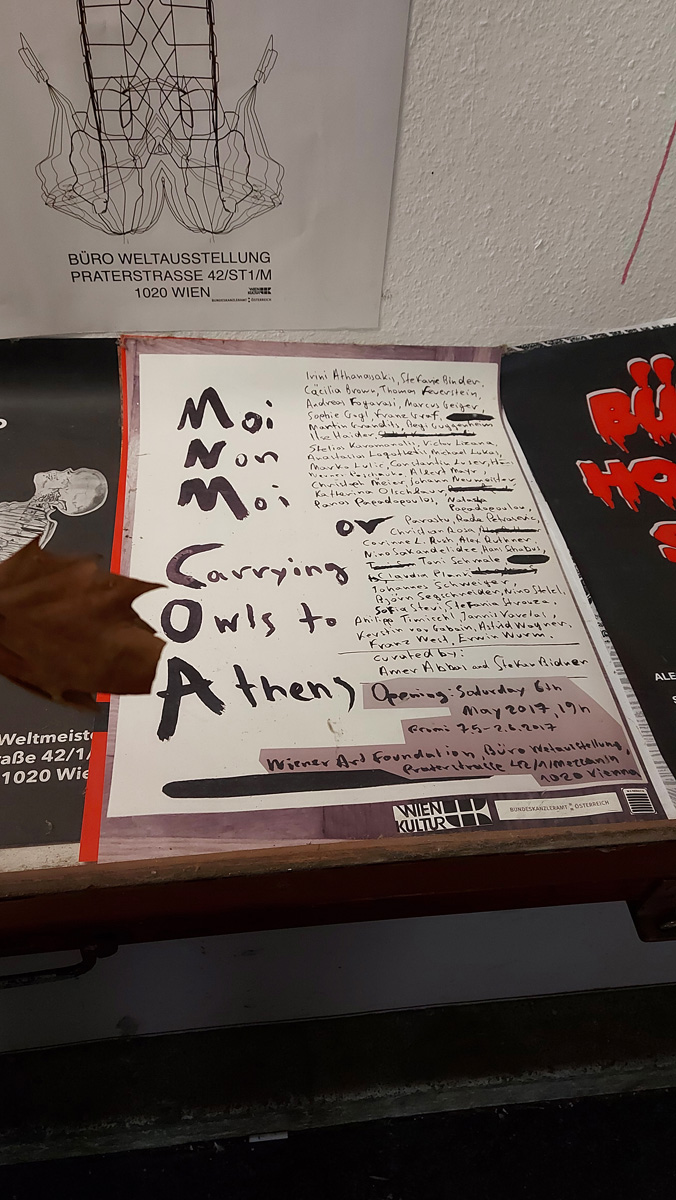 BÜRO WELTAUSSTELLUNG
PRATERSTRASSE 42/ST1/M
1020 WIEN
WIEN
KULTUR
BUNDESKANZLERAMT ÖSTERREICH
Moi
Non
Moi
or
Carrying
Owls to
Athens
Irini Athanassakis, Stefanie Binder,
Cäcilia Brown, Thomas Feuerstein,
Andreas Fogarasi, Marcus Geiger
Sophie Gogl, Franz Graf
Martin Grandits, Pegi Guggenheim
Ilse Haider,
Stelios Karamanolis, Victor Lizana,
Anastasios Logothetis, Michael Lukas,
Marko Lulic, Constantin Luser,
Albert Mayr,
Christoph Meier, Johann Neumeister
Katherina Olschbaur,
Panos Papadopoulos, Natasha
Papadopoulou,
Parastu, Rada Petrovic,
Christian Rosa
Corinne L. Rusch, Alex Ruthner,
Nino Sakandelidze, Hani Shobul,
Toni Schmale
Claudia Plank
Johannes Schweiger,
Björn Segschneider, Nino Stelzl,
Sofia Stevi, Stefania Strouza,
Philipp Timischl, Jannis Varelas,
Kerstin von Gabain, Astrid Wagner,
Franz West, Erwin Wurm.
curated by:
Amer Abbas and Stefan Bidner
Opening: Saturday 6th
May 2017, 19h
From: 7.5-2.6.2017
Wiener Art Foundation, Büro Weltausstellung,
Praterstrasse 42/1/Mezzanin
1020 Vienna
WIEN
KULTUR
BUNDESKANZLERAMT ÖSTERREICH
Weltmeist
raße 42/1/
1020 Wie
BÜ
HO
S
ALE